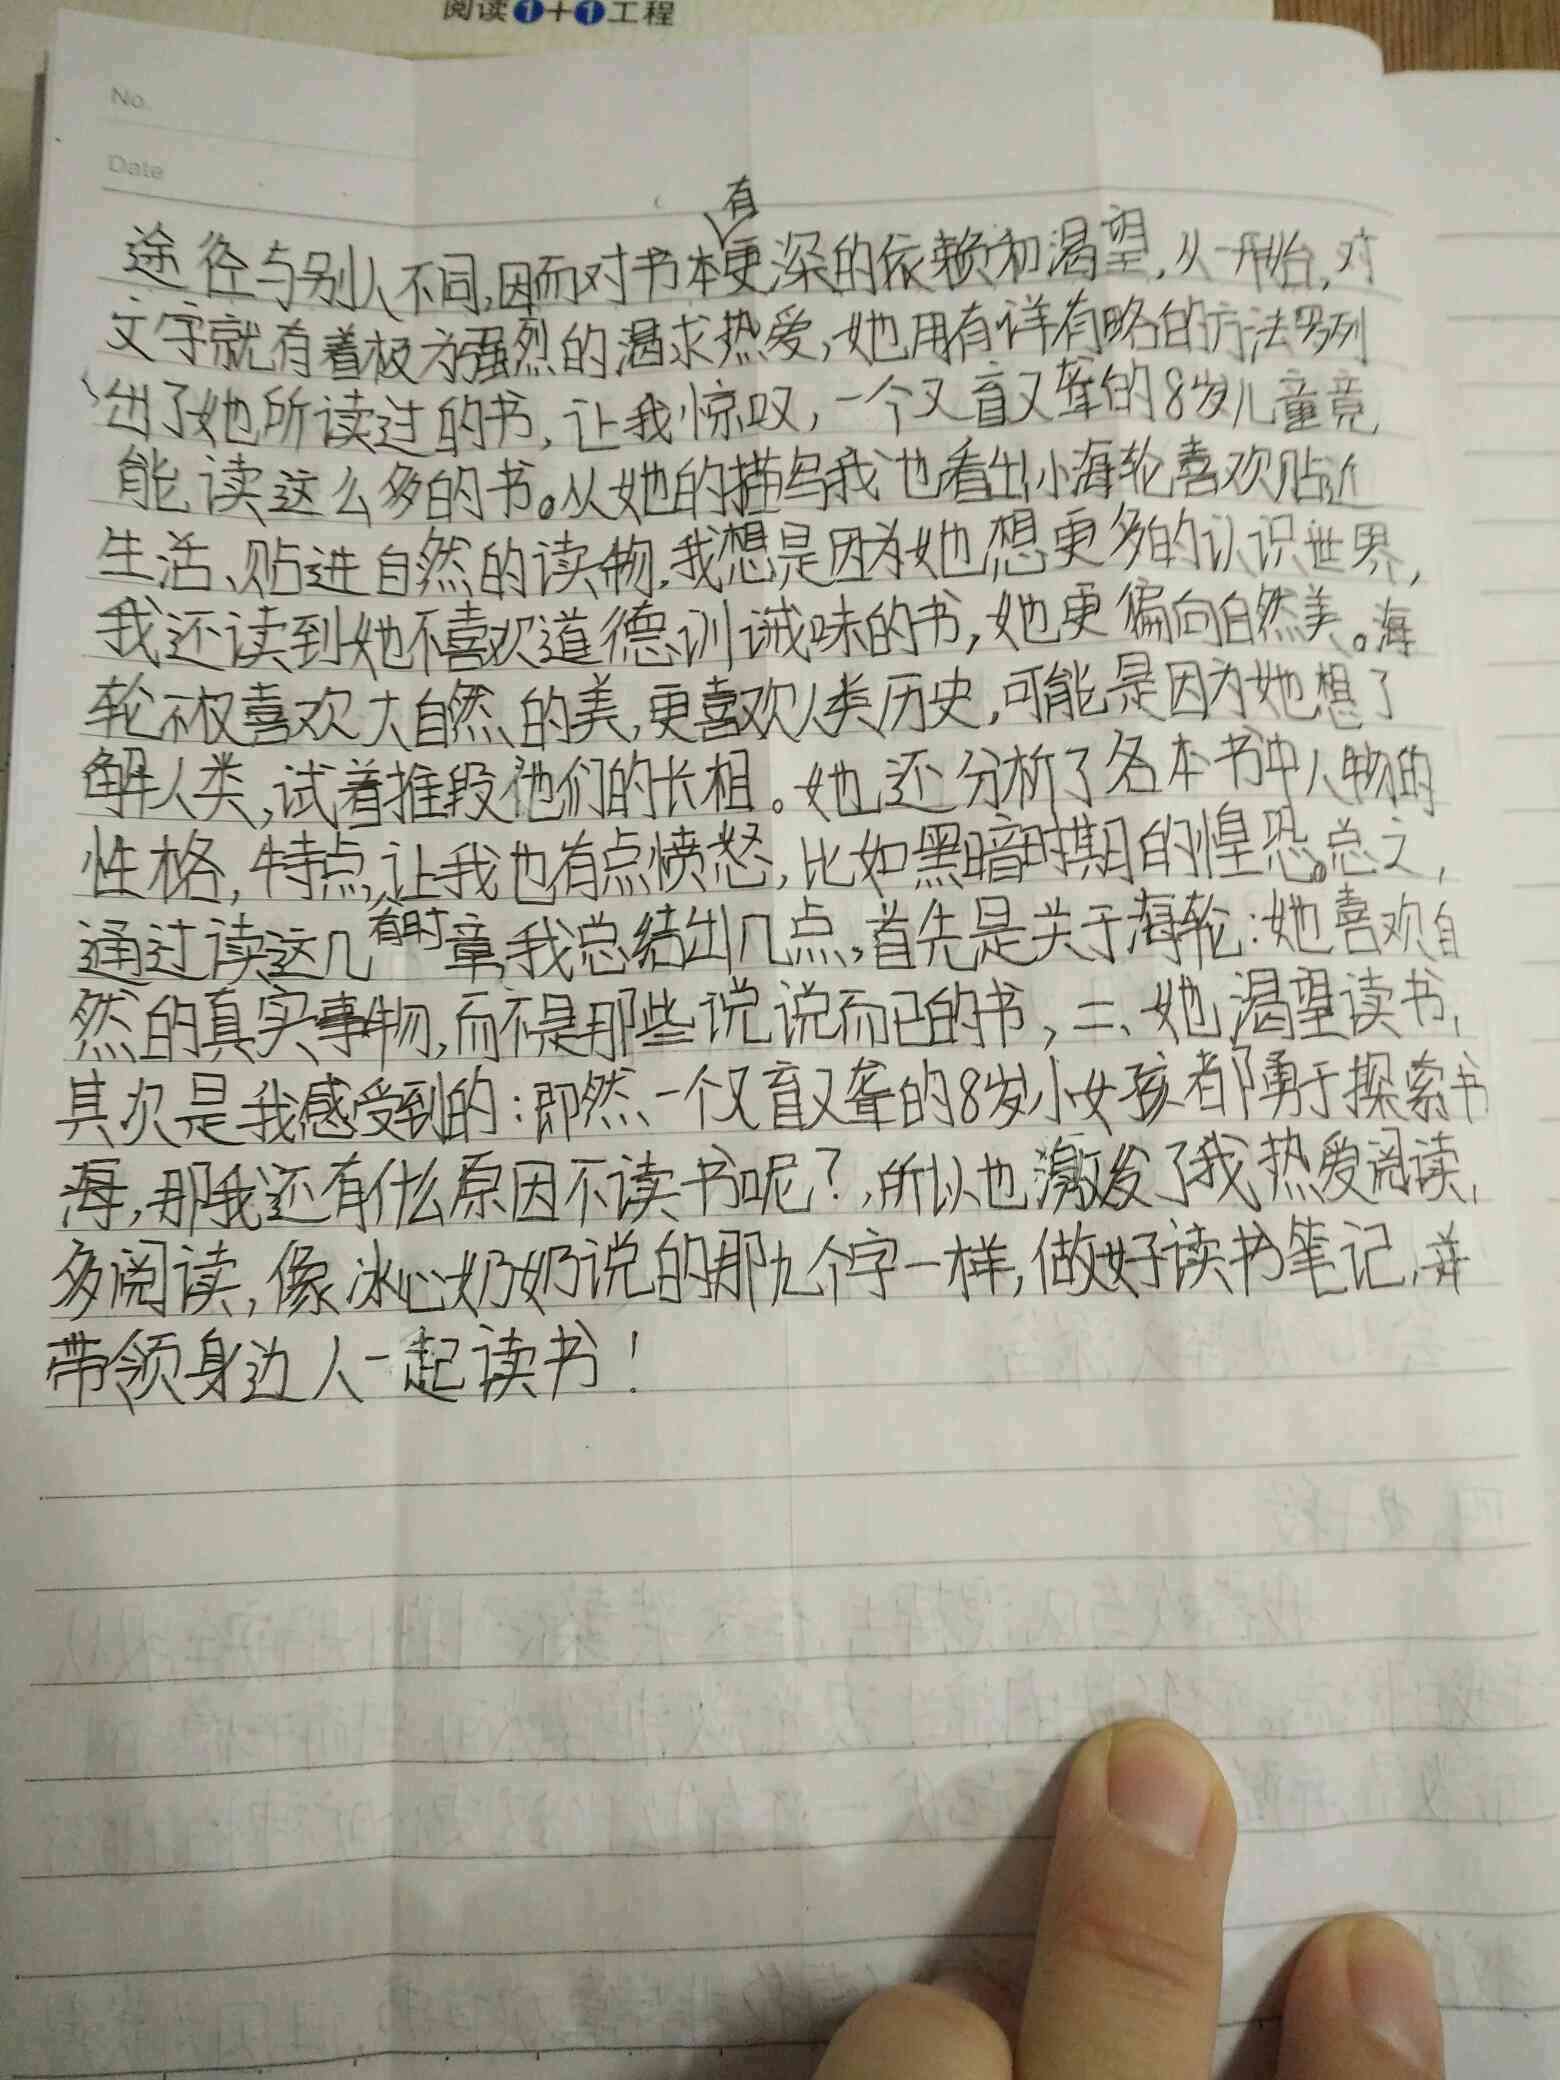 阅读1+1工程
No.
Date
有
途径与别人不同,因而对书本更深的依赖和渴望,从一开始,对
文字就有着极为强烈的渴求热爱,她用有详有略的方法罗列
出了她所读过的书,让我惊叹,一个又盲又聋的8岁儿童竟
能读这么多的书。从她的描写我也看出小海轮喜欢贴近
生活、贴进自然的读物,我想是因为她想更多的认识世界,
我还读到她不喜欢道德训诫味的书,她更偏向自然美。海
轮不仅喜欢大自然的美,更喜欢人类历史,可能是因为她想了
解人类,试着推段他们的长相。她还分析了各本书中人物的
性格,特点,让我也有点愤怒,比如黑暗时期的惶恐。总之,
通过读这几章,我总结出几点,首先是关于海轮:她喜欢自
然的真实事物,而不是那些说说而已的书,二、她渴望读书,
其次是我感受到的:即然一个又盲又聋的8岁小女孩都勇于探索书
海,那我还有什么原因不读书呢?,所以也激发了我热爱阅读,
多阅读,像冰心奶奶说的那九个字一样,做好读书笔记,并
带领身边人一起读书!